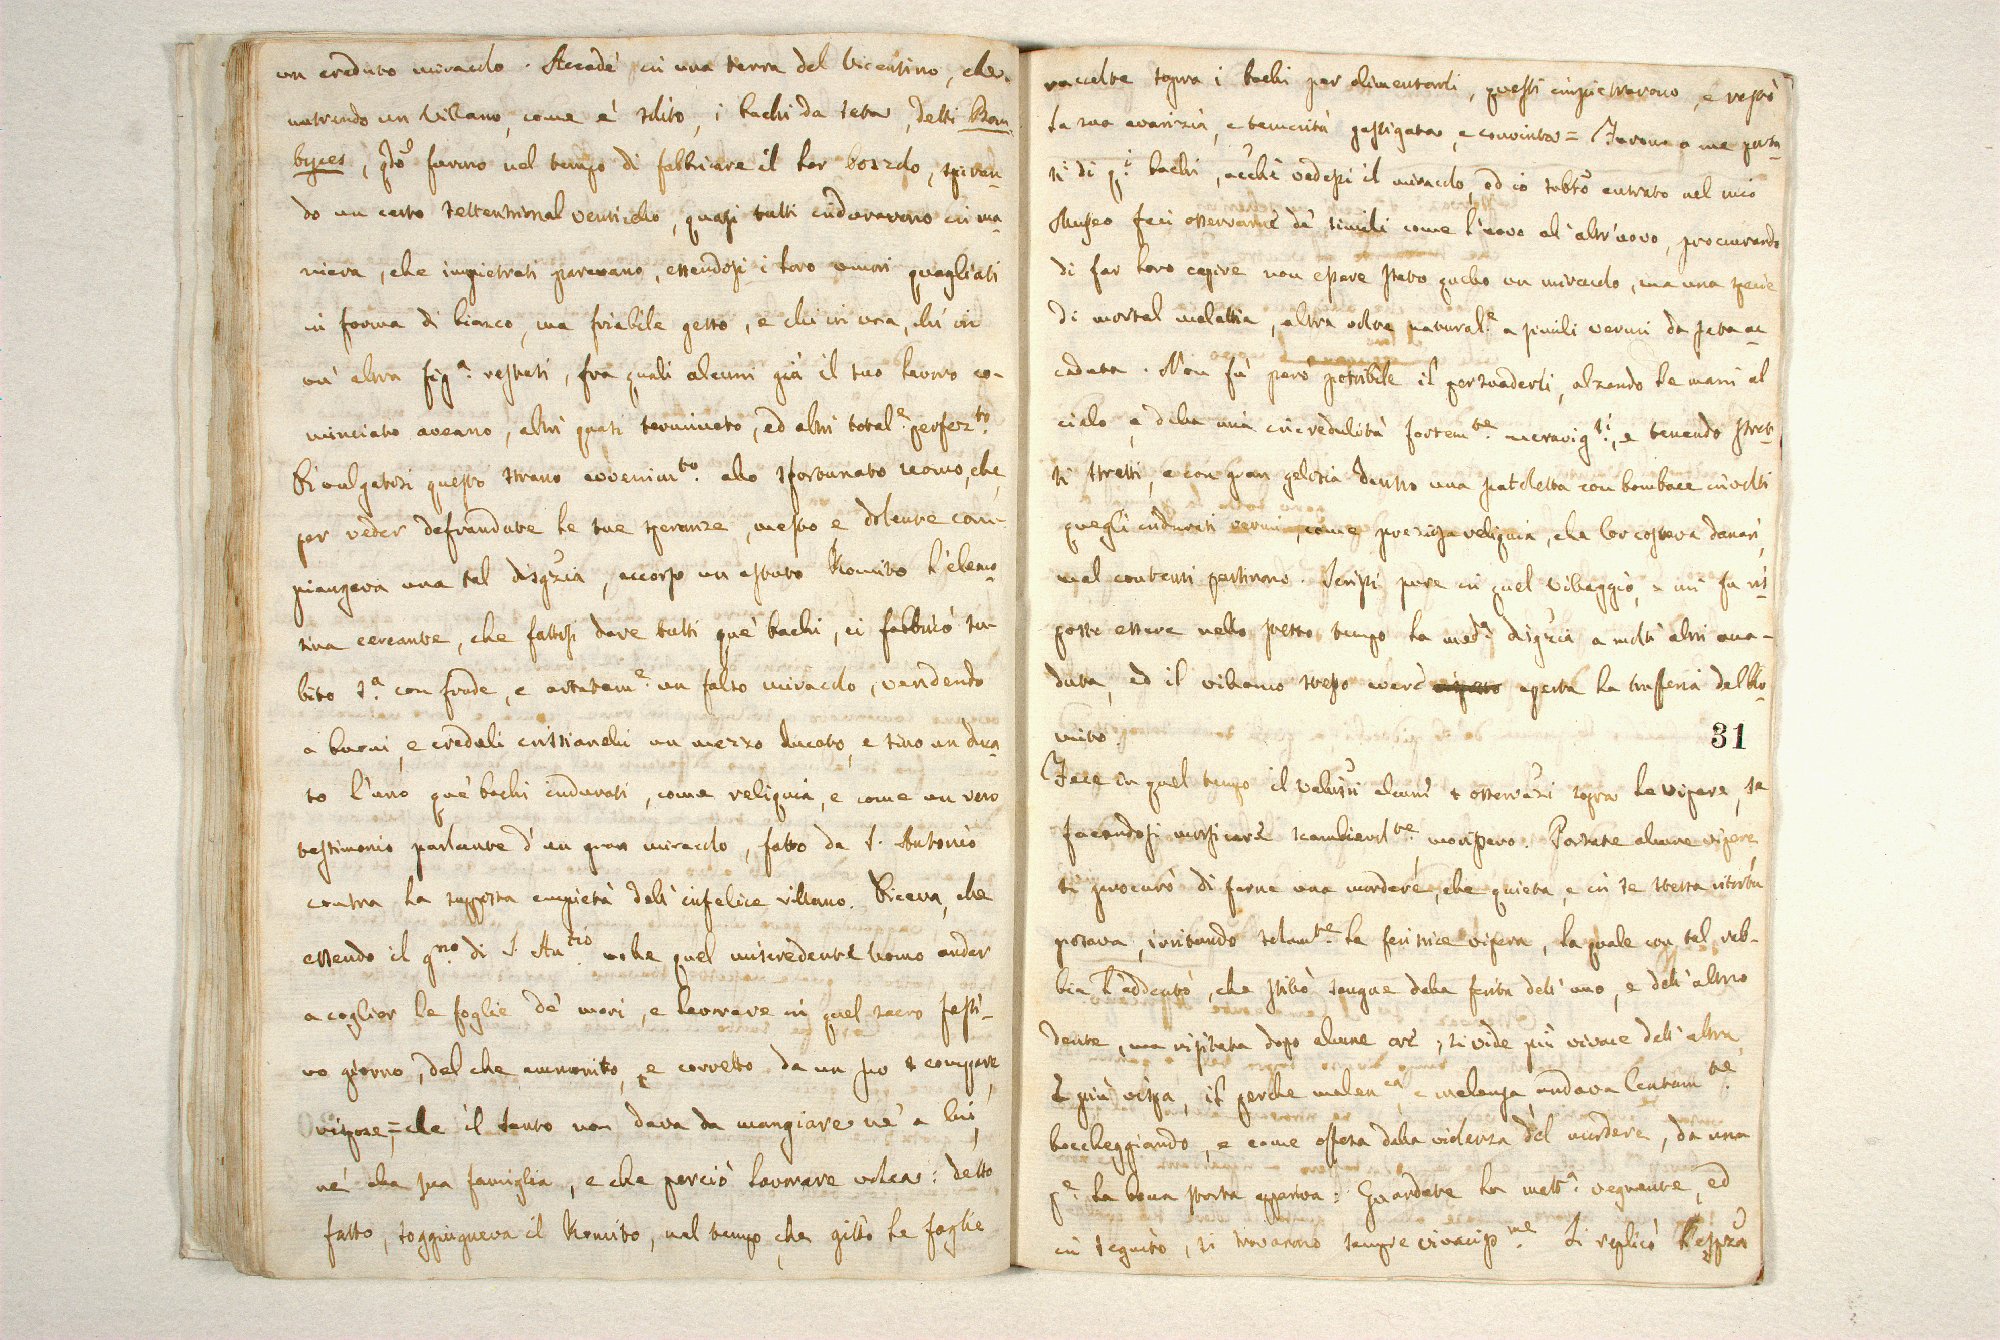 un creduto miracolo. Accadè in una terra del Vicentino, che
nutrendo un Villano, come è solito, i bachi da seta, detti Bom
byces, q͠do furono nel tempo di fabbricare il lor bozzolo, spiran-
do un certo settentrional venticello, quasi tutti indurarono in ma-
niera, che impietrati parevano, essendosi i loro umori quagliati
in forma di bianco, ma friabile gesso, e chi in una, chi in
un' altra fig.ª restati, fra quali alcuni già il suo lavoro co-
minciato aveano, altri quasi terminato, ed altri total.e perfez.to
Divulgatosi questo strano avvenim.to allo sfortunato uomo, che
per veder defraudate le sue speranze, mesto, e dolente com-
piangeva una tal disgzia, accorse un astuto Romito l'elemo-
sina cercante, che fattisi dare tutti que' bachi, ci fabbricò su-
bito s.ª con frode, e artatam.e un falso miracolo, vendendo
a buoni, e creduli cristianelli un mezzo ducato, e sino un duca
to l'uno que' bachi indurati, come reliquia, e come un vero
testimonio parlante d'un gran miracolo, fatto da S. Antonio
contra la supposta empietà dell' infelice villano. Diceva, che
essendo il g.no di S. Ant.nio volle quel miscredente uomo andar
a coglier le foglie de' mori, e lavorare in quel sacro festi-
vo giorno, del che ammonito, e corretto da un suo compare,
rispose, = che il Santo non dava da mangiare nè a lui,
nè alla sua famiglia, e che perciò lavorare volea: detto
fatto, soggiugneva il Romito, nel tempo, che gittò le foglie
raccolte sopra i bachi per alimentarli, questi impietrarono, e restò
la sua avarizia, e temerità gastigata, e convinta = Furono a me porta-
ti di q.i bachi, acciò vedessi il miracolo, ed io tosto entrato nel mio
Museo feci osservarne de' simili come l'uovo al' altr'uovo, procurando
di far loro capire non essere stato quello un miracolo, ma una specie
di mortal malattia, altra volta natural.e a simili vermi da seta ac-
caduta. Non fù però possibile il persuaderli, alzando le mani al
cielo, e della mia incredulità fortem.te meravig.ti, e tenendo stret-
ti stretti, e con gran gelosia dentro una scatoletta con bombace involti
quegli indurati vermi, come preziosa reliquia, che lor costava danari,
mal contenti partirono. Scrissi pure in quel villaggio, e mi fu ri-
posto essere nello stesso tempo la med.ª disgzia a molti altri acca-
duta, ed il villano stesso avere aperta la trufferia del Ro-
mito.
31
Fece in quel tempo il Valisni alcune osservazni sopra le vipere, se
facendosi morsicare scambievol.te morissero. Portate alcune vipere
si procurò di farne una mordere, che quieta, e in se stessa ritorta
posava, irritando solam.te la feritrice vipera, la quale con tal rab-
bia l'addentò, che stillò sangue dalla ferita dell' uno, e dell' altro
dente, ma visitata dopo alcune ore, si vide più vivace dell' altra,
e più vispa, il perche malen.ca e melensa andava lentam.te
boccheggiando, e come offesa dalla violenza del mordere, da una
p.e la bocca storta appariva: Guardate la matt.ª vegnente, ed
in seguito, si trovarono sempre vivaciss.me Si replicò l'espzra